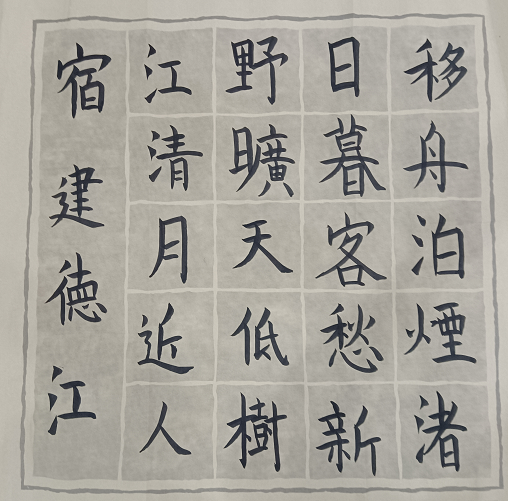 移舟泊煙渚
日暮客愁新
野曠天低樹
江清月近人
宿建徳江